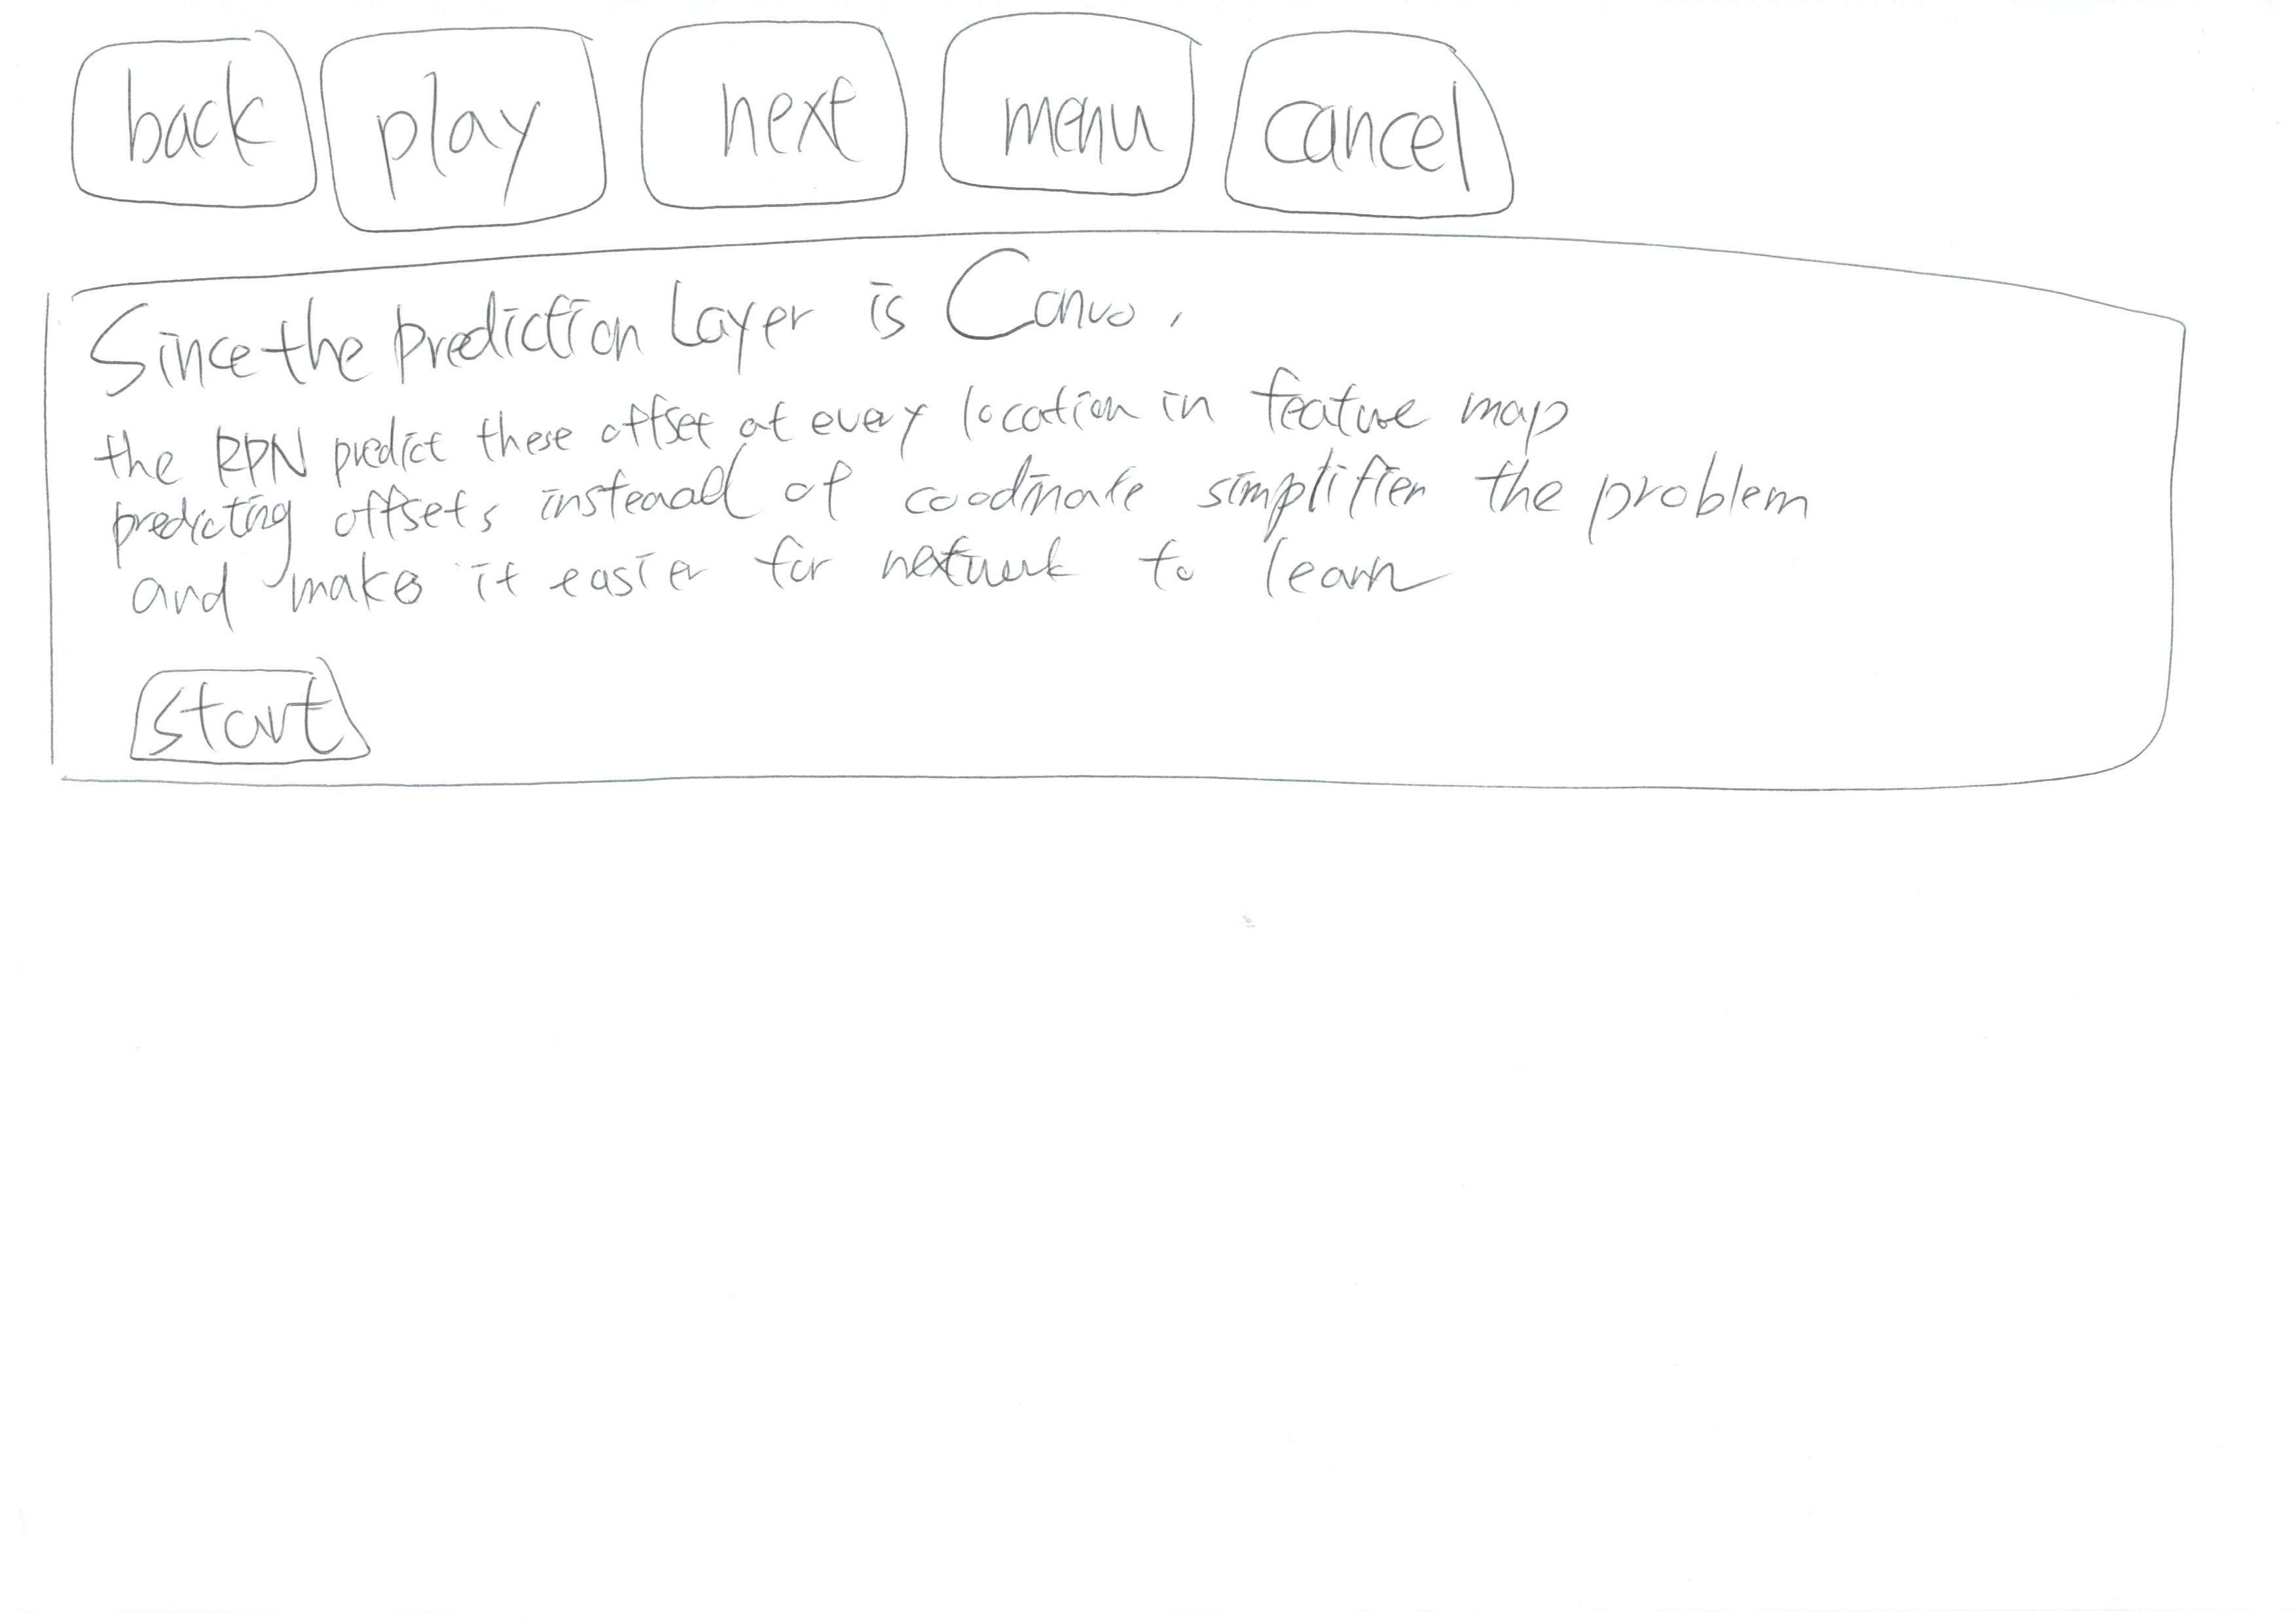 back play next menu cancel
Since the prediction Layer is Convo,
the RPN predict these offset at every location in feature map
predicting offsets instead of coodinate simplifier the problem
and makes it easier for network to learn
start